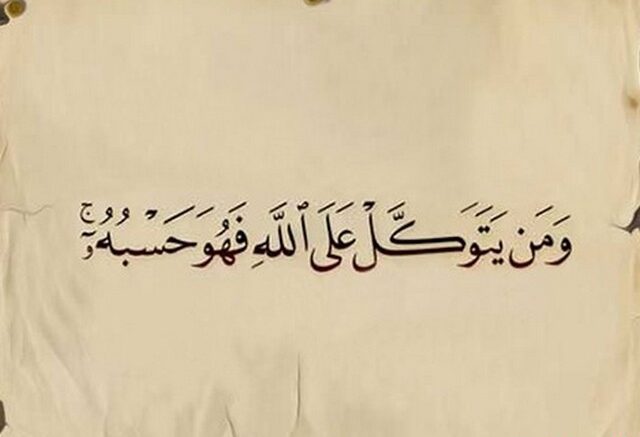 وَمَن يَتَوَكَّلْ عَلَى ٱللَّهِ فَهُوَ حَسْبُهُۥٓ ۚ